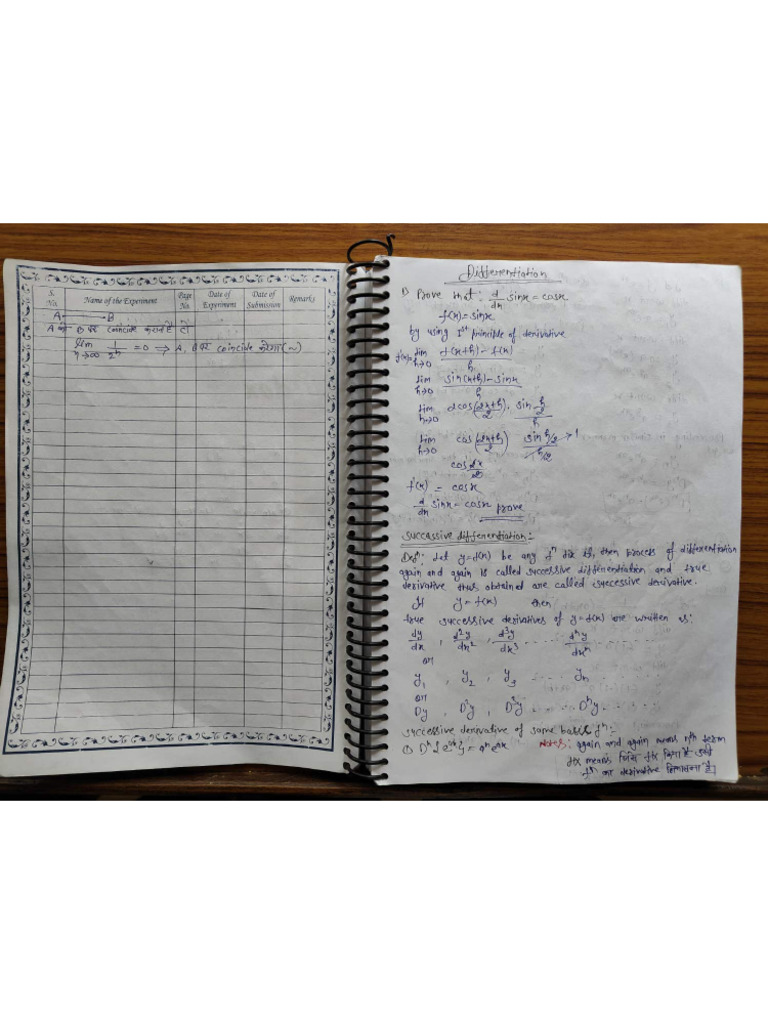 S. No. Name of the Experiment Page No. Date of Experiment Date of Submission Remarks
A B
A को B पर coincide
lim n→∞ 1/2ⁿ = 0 ⇒ A, B पर coincide करेगा
Differentiation
Prove that: d/dx sinx = cosx
f(x) = sinx
by using 1st principle of derivative
lim h→0 f(x+h) - f(x) / h
lim h→0 sin(x+h) - sinx / h
lim h→0 2cos(2x+h/2) . sin h/2 / h
lim h→0 cos(2x+h/2) sin h/2 / h/2 → 1
cos 2x/2
f'(x) = cosx
d/dx sinx = cosx prove
successive differentiation:-
Def: Let y=f(x) be any fⁿ of x, then process of differentiation
again and again is called successive differentiation and
derivative thus obtained are called successive derivative.
If y = f(x) then
successive derivatives of y=f(x) are written as:
dy/dx , d²y/dx² , d³y/dx³ ..... dⁿy/dxⁿ .....
or
y₁ , y₂ , y₃ ... yₙ ....
or
Dy , D²y , D³y ..... Dⁿy.......
successive derivative of some basic fⁿ:-
① Dⁿ{eᵃˣ} = aⁿeᵃˣ Notes: again and again means nth term
means जिस दिया है उसी
fⁿ का derivative निकालना है।